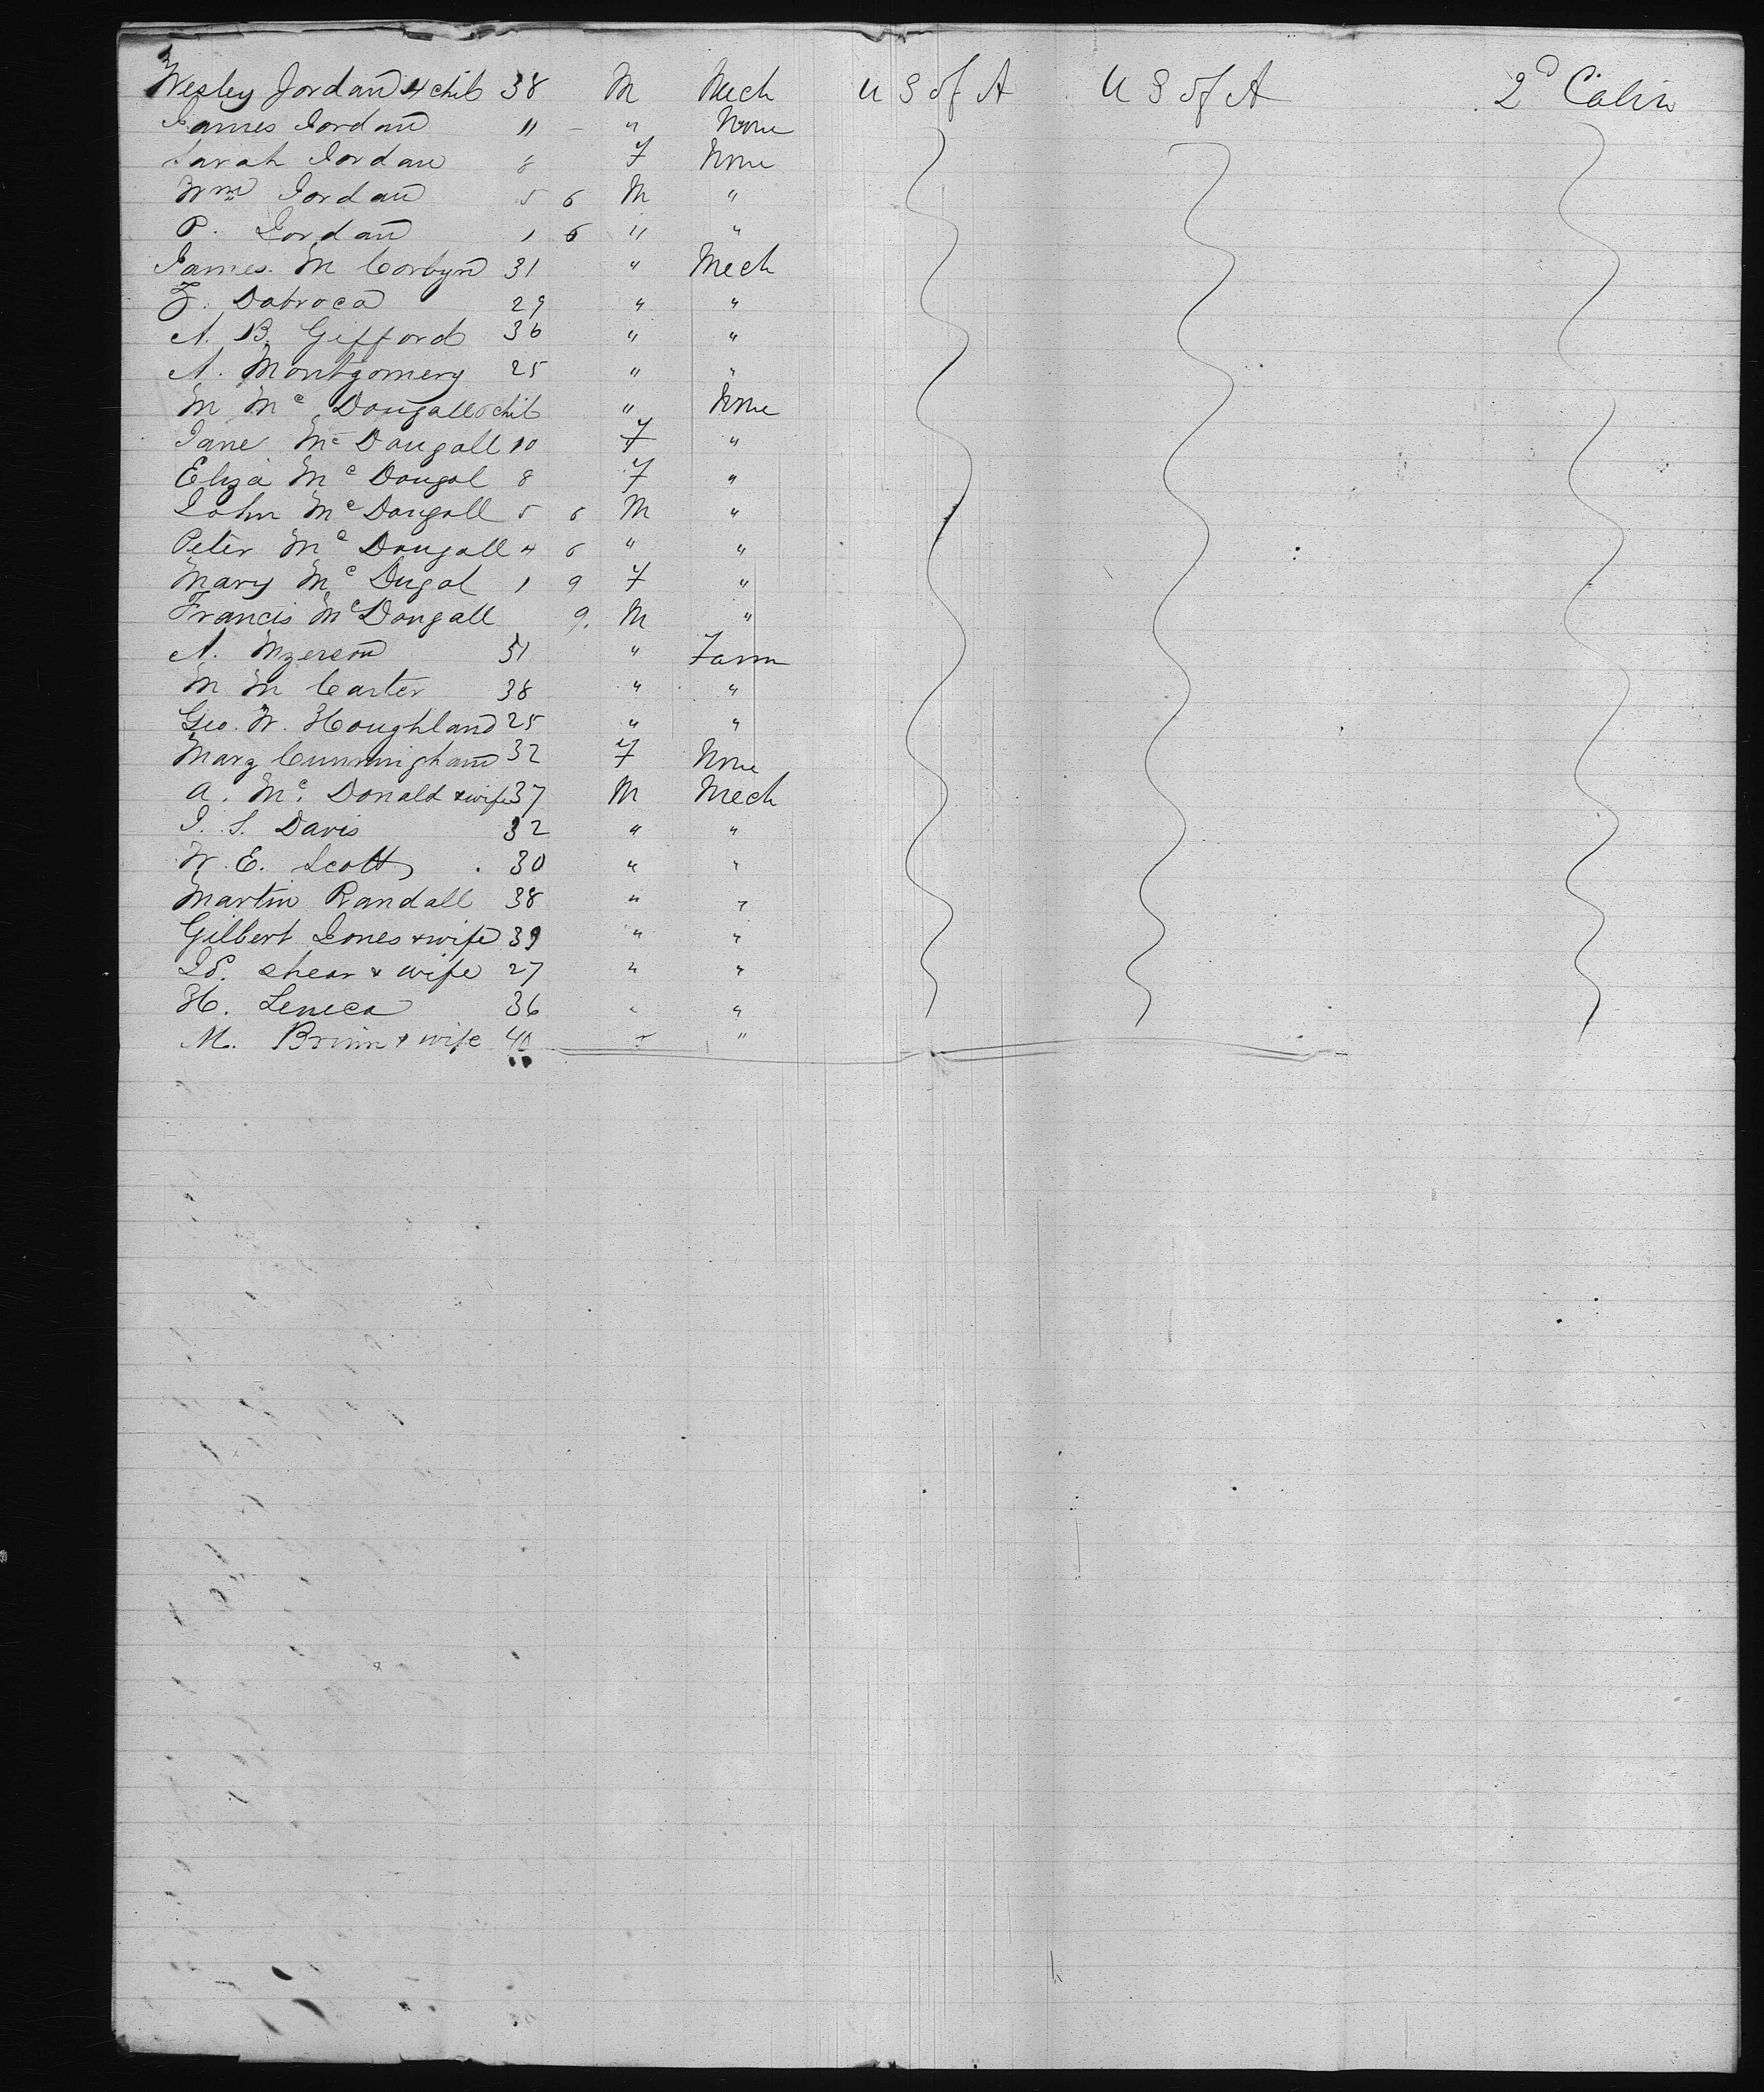 Wesley Jordan 4 chil 38 M Mech U S of A U S of A 2d Cabin
James Jordan 11 - " None
Sarah Jordan 8 F None
Wm Jordan 5 6 M "
P. Jordan 1 6 " "
James. M Corbyn 31 " Mech
Z. Dabroca 29 " "
A. B. Gifford 36 " "
A. Montgomery 25 " "
M Mc Dougall 6 chil " None
Jane Mc Dougall 10 F "
Eliza Mc Dougal 8 F "
John Mc Dougall 5 6 M "
Peter Mc Dougall 4 6 " "
Mary Mc Dugal 1 9 F "
Francis McDougall 9. M "
A. 51 " Farm
M M Carter 38 " "
Geo. W. Houghland 25 " "
Mary Cunningham 32 F None
A. Mc. Donald & wife 37 M Mech
J. S. Davis 32 " "
W. E. Scott 30 " "
Martin Randall 38 " "
Gilbert Jones & wife 39 " "
shear & wife 27 " "
H. Seneca 36 " "
M. Brinn & wife 40 " "